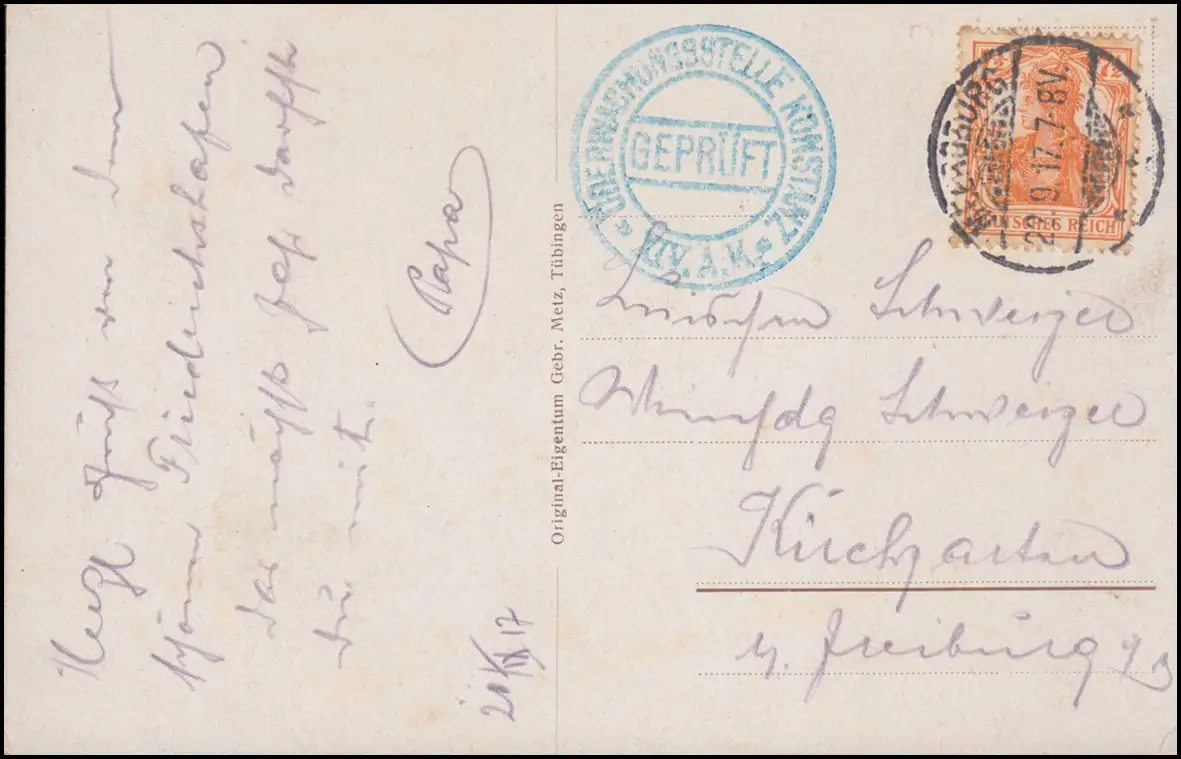 Herzl. Gruß von dem
schönen Friedrichshafen
das nächste Jahr darfst
Du mit.
Papa
21/IX 17
Original-Eigentum Gebr. Metz, Tübingen
ÜBERWACHUNGSSTELLE KONSTANZ
GEPRÜFT
* XIV. A.K. *
22.9.17.7-8V.
SCHES REICH
Luischen Schwerzel
Schwerzel
Kirchzarten
b. Freiburg i/B